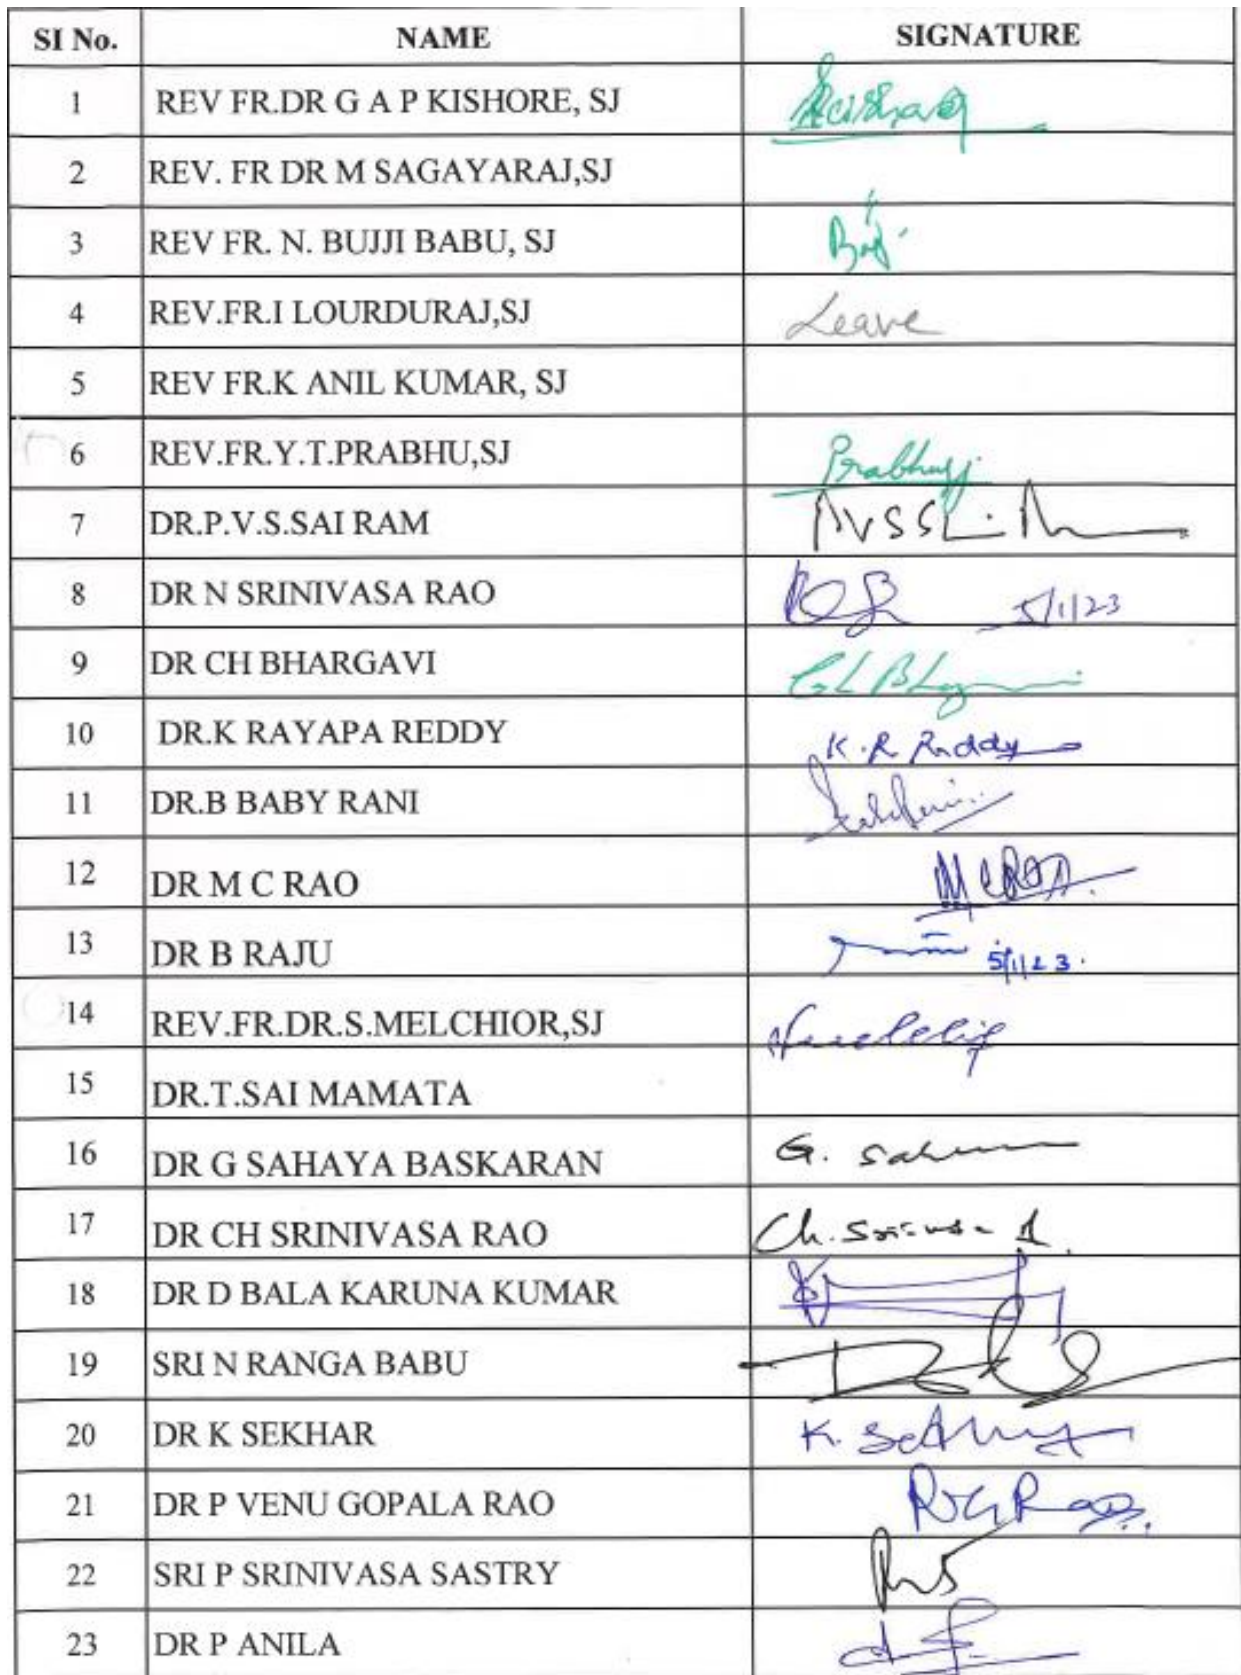 SI No. NAME SIGNATURE
1 REV FR.DR G A P KISHORE, SJ
2 REV. FR DR M SAGAYARAJ,SJ
3 REV FR. N. BUJJI BABU, SJ
4 REV.FR.I LOURDURAJ,SJ Leave
5 REV FR.K ANIL KUMAR, SJ
6 REV.FR.Y.T.PRABHU,SJ Prabhusj
7 DR.P.V.S.SAI RAM
8 DR N SRINIVASA RAO 5/1/23
9 DR CH BHARGAVI
10 DR.K RAYAPA REDDY K.R Reddy
11 DR.B BABY RANI
12 DR M C RAO MCRAO
13 DR B RAJU 5/1/23.
14 REV.FR.DR.S.MELCHIOR,SJ
15 DR.T.SAI MAMATA
16 DR G SAHAYA BASKARAN G.
17 DR CH SRINIVASA RAO Ch.
18 DR D BALA KARUNA KUMAR
19 SRI N RANGA BABU
20 DR K SEKHAR K.
21 DR P VENU GOPALA RAO
22 SRI P SRINIVASA SASTRY
23 DR P ANILA